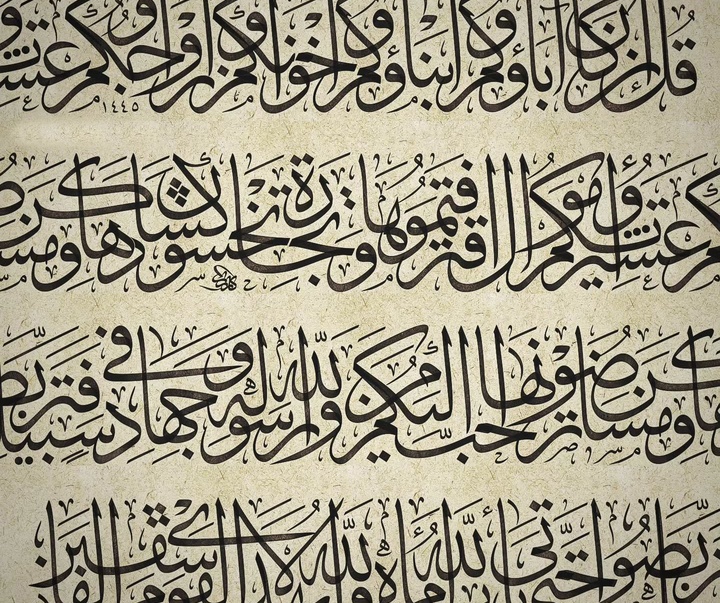 قل إن كان آباؤكم وأبناؤكم وإخوانكم وأزواجكم
١٤٤٥
وعشيرتكم وأموال اقترفتموها وتجارة تخشون كسادها
ومساكن ترضونها أحب إليكم من الله ورسوله وجهاد في سبيله
فتربصوا حتى يأتي الله بأمره والله لا يهدي القوم